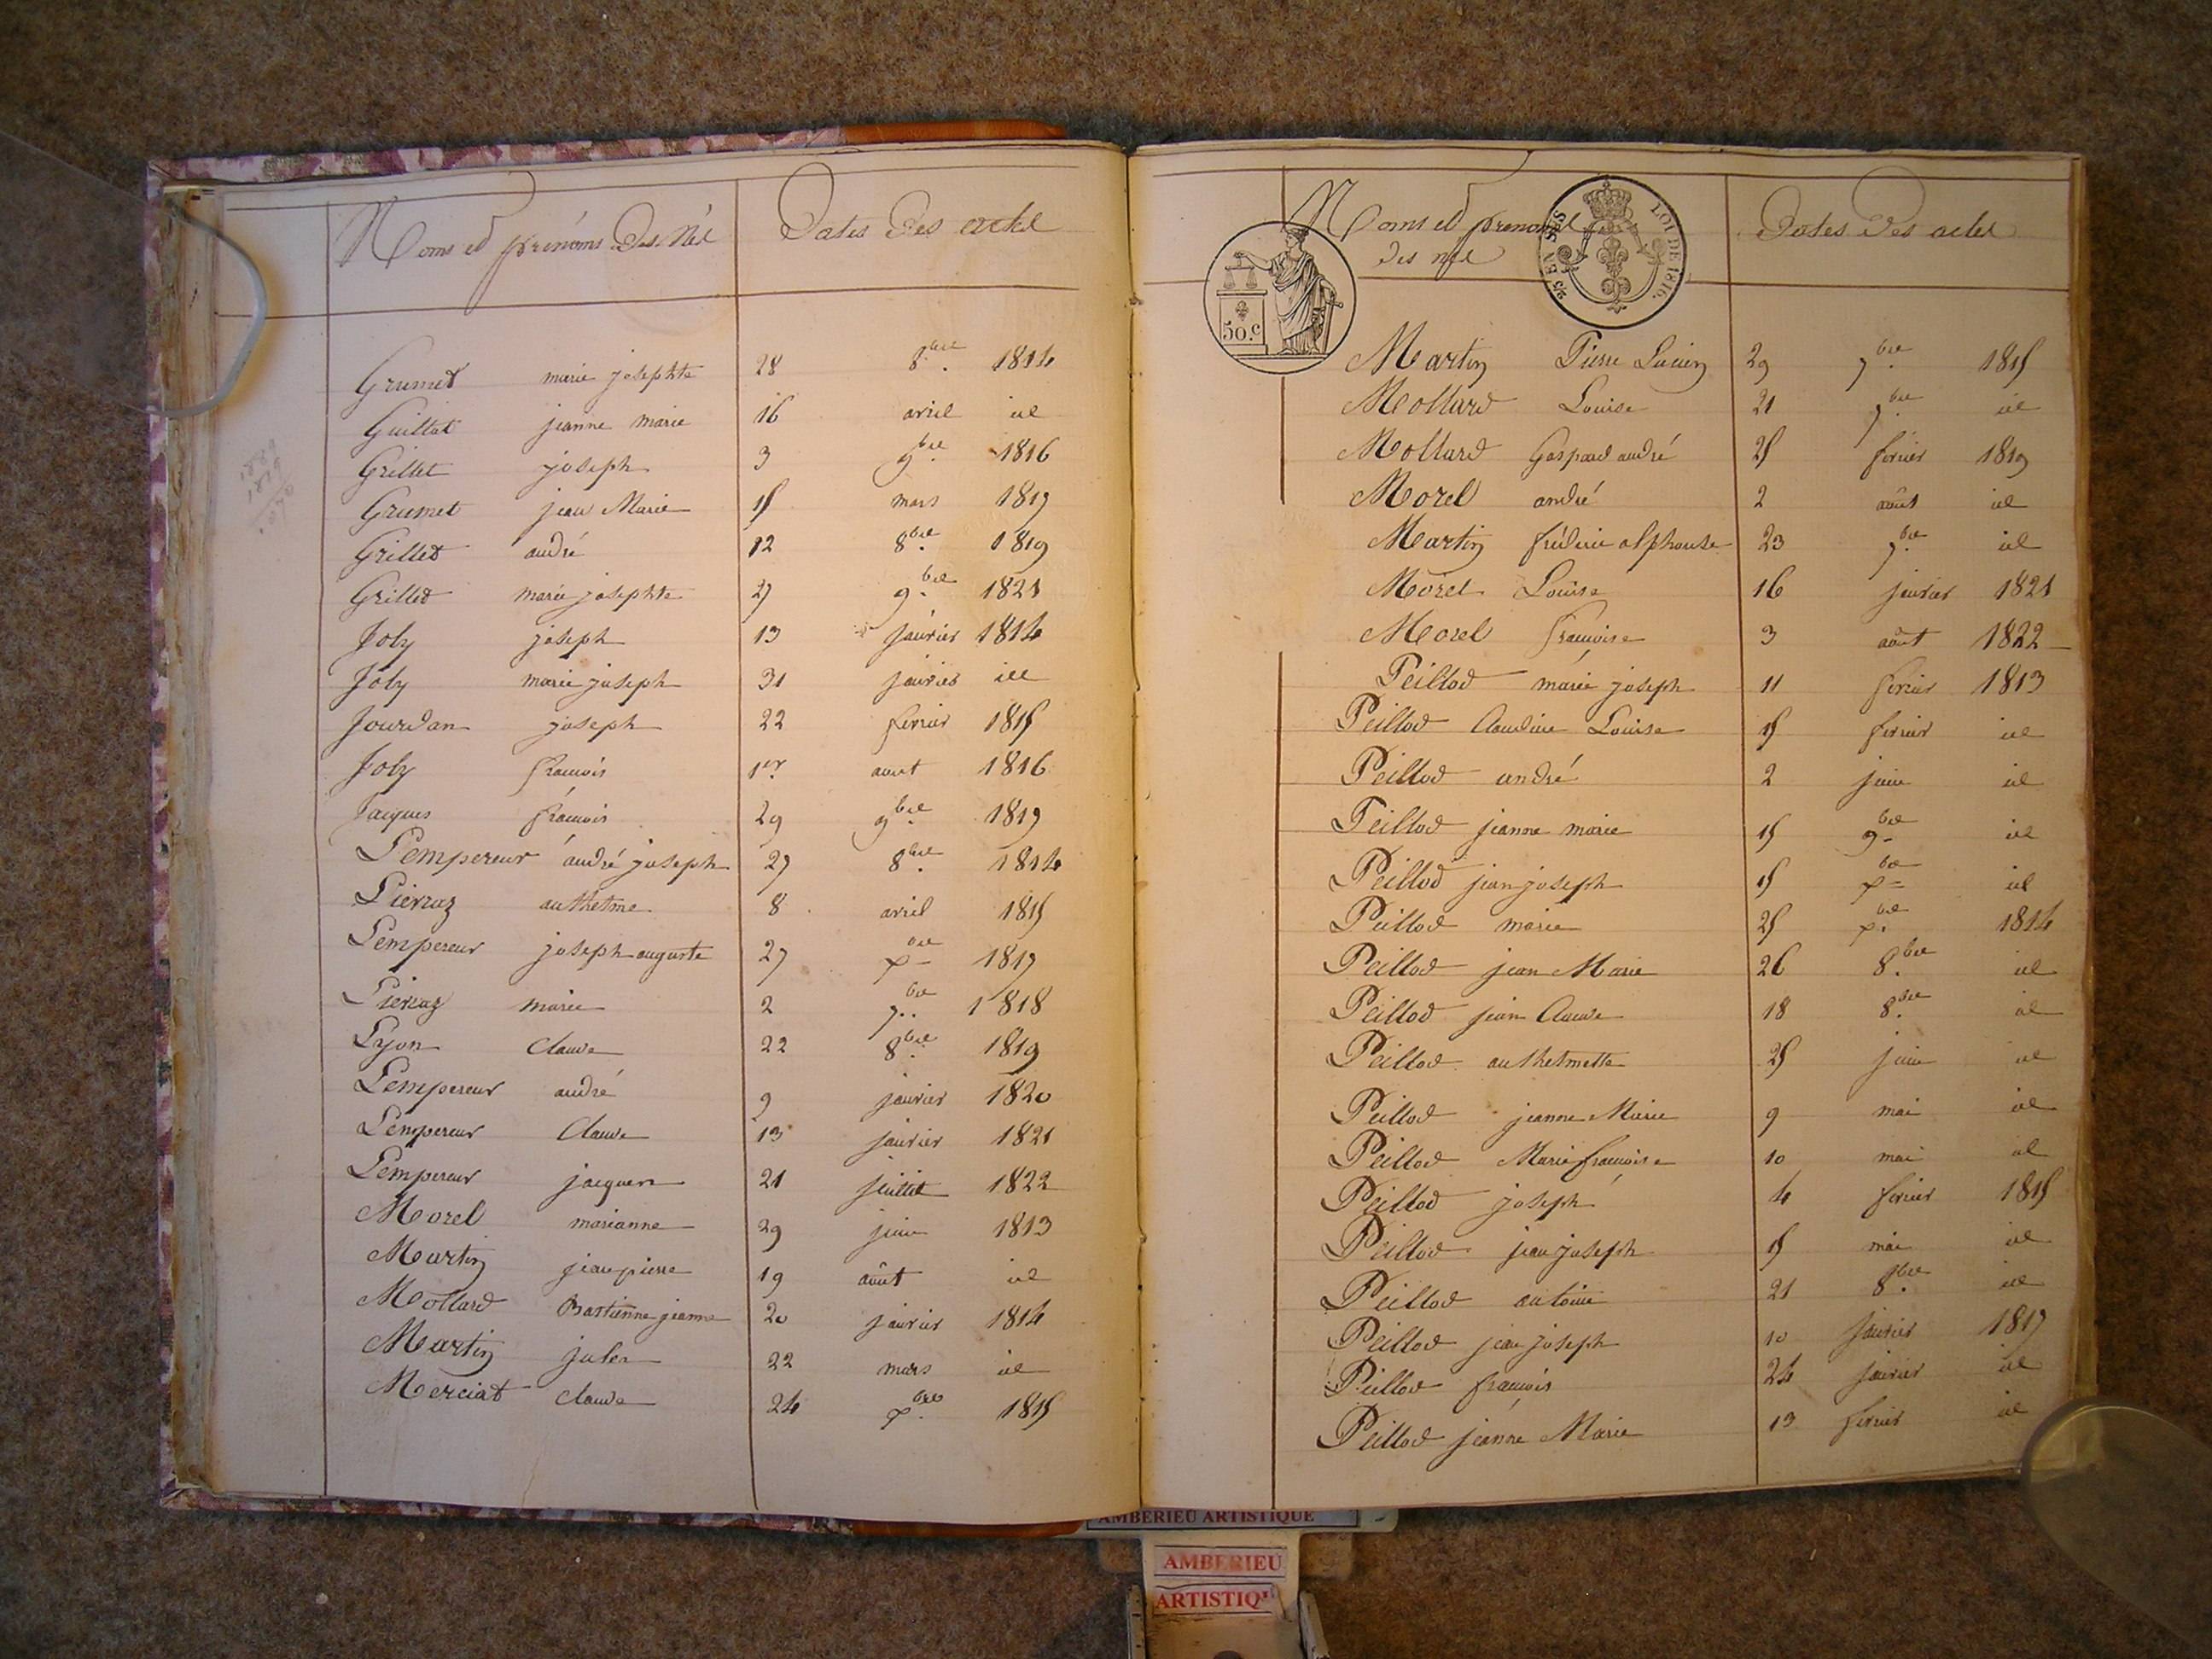 Noms et prénoms Des Nés Dates Des actes
Grumet marie josephte 28 8.bre 1814
Guillot jeanne marie 16 avril id
Grillet joseph 3 9bre 1816
Grumet jean Marie 15 mars 1817
Grillet andré 12 8bre 1819
Grillet marie josephte 27 9.bre 1821
Joly joseph 13 janvier 1814
Joly marie joseph 31 janvier id
Jourdan joseph 22 fevrier 1815
Joly francois 1er aout 1816
Jacques francois 29 9bre 1817
Lempereur andré joseph 27 8bre 1814
Lierraz anthelme 8 avril 1815
Lempereur joseph auguste 27 xbre 1817
Lierraz marie 2 7bre 1818
Lyon Claude 22 8bre 1819
Lempereur andré 9 janvier 1820
Lempereur Claude 13 janvier 1821
Lempereur jacques 21 juillet 1822
Morel marianne 29 juin 1813
Martin jean pierre 19 août id
Mollard Bastienne jeanne 20 janvier 1814
Martin jules 22 mars id
Merciat claude 24 xbre 1815
1882
1819
Noms et prenoms
des nés Dates Des actes
50.c
LOI DE 1816.
EN SUS
Martin Pierre Lucien 29 7bre 1815
Mollard Louise 21 7bre id
Mollard Gaspard andré 25 fevrier 1819
Morel andré 2 août id
Martin frederic alphonse 23 7bre id
Morel Louise 16 janvier 1821
Morel francoise 3 août 1822
Peillod marie joseph 11 fevrier 1813
Peillod Claudine Louise 15 fevrier id
Peillod andré 2 juin id
Peillod jeanne marie 15 9bre id
Peillod jean joseph 15 xbre id
Peillod marie 25 xbre 1814
Peillod jean Marie 26 8bre id
Peillod jean Claude 18 8bre id
Peillod anthelmette 25 juin id
Peillod jeanne Marie 9 mai id
Peillod Marie francoise 10 mai id
Peillod joseph 4 fevrier 1815
Peillod jean joseph 15 mai id
Peillod antoine 21 8bre id
Peillod jean joseph 10 janvier 1817
Peillod francois 24 janvier id
Peillod jeanne Marie 13 fevrier id
AMBERIEU ARTISTIQUE
AMBERIEU
ARTISTIQU